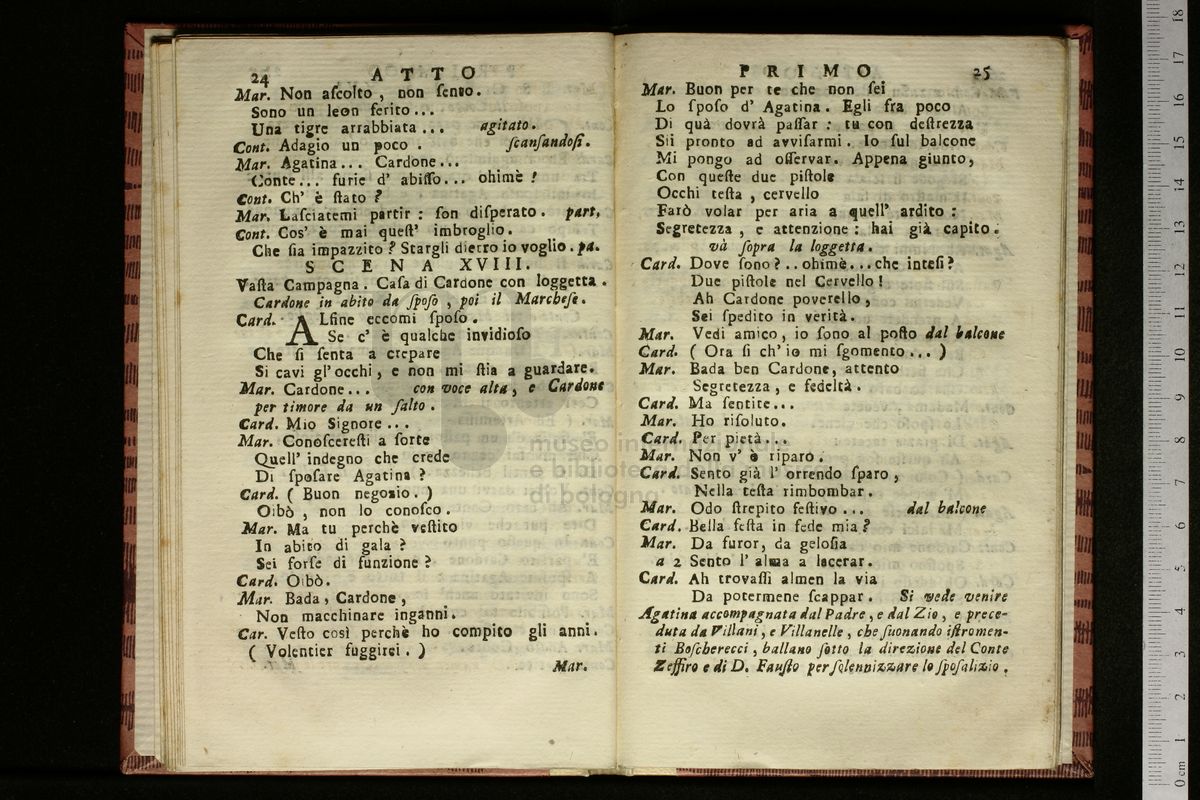 24 ATTO
Mar. Non aſcolto , non ſento.
Sono un leon ferito...
Una tigre arrabbiata... agitato.
Cont. Adagio un poco . ſcanſandoſi.
Mar. Agatina... Cardone...
Conte... furie d' abiſſo... ohimè !
Cont. Ch' è ſtato ?
Mar. Laſciatemi partir : ſon diſperato. part,
Cont. Cos' è mai queſt' imbroglio.
Che ſia impazzito ? Stargli dietro io voglio. pa.
SCENA XVIII.
Vaſta Campagna. Caſa di Cardone con loggetta .
Cardone in abito da ſpoſo , poi il Marcheſe.
Card. ALfine eccomi ſpoſo .
Se c' è qualche invidioſo
Che ſi ſenta a crepare
Si cavi gl' occhi, e non mi ſtia a guardare.
Mar. Cardone... con voce alta, e Cardone
per timore da un ſalto .
Card. Mio Signore...
Mar. Conoſcereſti a ſorte
Quell' indegno che crede
Di ſpoſare Agatina ?
Card. ( Buon negozio. )
Oibò , non lo conoſco.
Mar. Ma tu perchè veſtito
In abito di gala ?
Sei forſe di funzione ?
Card. Oibò.
Mar. Bada, Cardone,
Non macchinare inganni.
Car. Veſto così perchè ho compito gli anni.
( Volentier fuggirei. )
Mar.
PRIMO 25
Mar. Buon per te che non ſei
Lo ſpoſo d' Agatina. Egli fra poco
Di quà dovrà paſſar : tu con deſtrezza
Sii pronto ad avviſarmi. Io ſul balcone
Mi pongo ad oſſervar. Appena giunto,
Con queſte due piſtole
Occhi teſta , cervello
Farò volar per aria a quell' ardito :
Segretezza , e attenzione : hai già capito.
và ſopra la loggetta.
Card. Dove ſono ?.. ohimè...che inteſi ?
Due piſtole nel Cervello !
Ah Cardone poverello,
Sei ſpedito in verità.
Mar. Vedi amico, io ſono al poſto dal balcone
Card. ( Ora ſi ch' io mi ſgomento... )
Mar. Bada ben Cardone, attento
Segretezza , e fedeltà .
Card. Ma ſentite...
Mar. Ho riſoluto.
Card. Per pietà...
Mar. Non v' è riparo.
Card. Sento già l' orrendo ſparo,
Nella teſta rimbombar.
Mar. Odo ſtrepito feſtivo... dal balcone
Card. Bella feſta in fede mia ?
Mar. Da furor, da geloſia
a 2 Sento l' alma a lacerar.
Card. Ah trovaſſi almen la via
Da potermene ſcappar. Si vede venire
Agatina accompagnata dal Padre, e dal Zio, e prece-
duta da Villani, e Villanelle, che ſuonando iſtromen-
ti Boſcherecci, ballano ſotto la direzione del Conte
Zeffiro e di D. Fauſto per ſolennizzare lo ſpoſalizio.
museo
e biblioteca
di bologna
0 cm 1 2 3 4 5 6 7 8 9 10 11 12 13 14 15 16 17 18